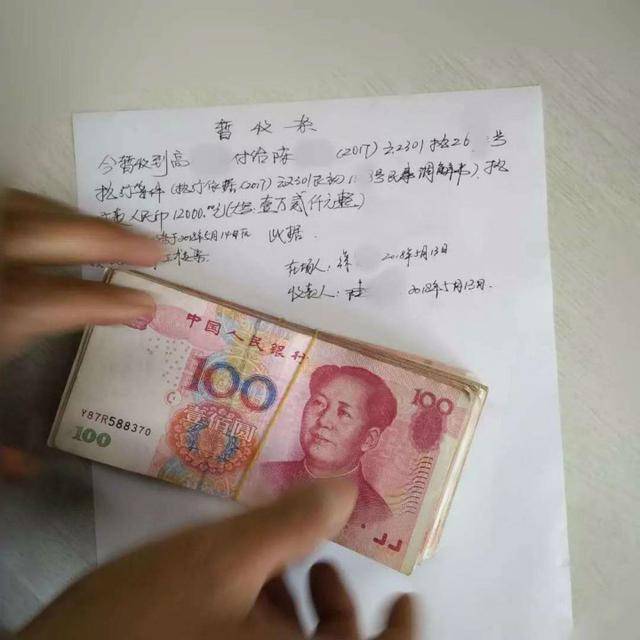 暂收条
今暂收到高 付给陈 (2017)云2301执26 号
执行案件(执行依据(2017)云2301民初1 3号民事调解书),执
人民币12000.00元(大写:壹万贰仟元整)
于2018年5月14日在 此据.
在场人: 2018年5月13日
收款人: 2018年5月13日.
中国人民银行
100
100
Y87R588370
壹佰圆
100